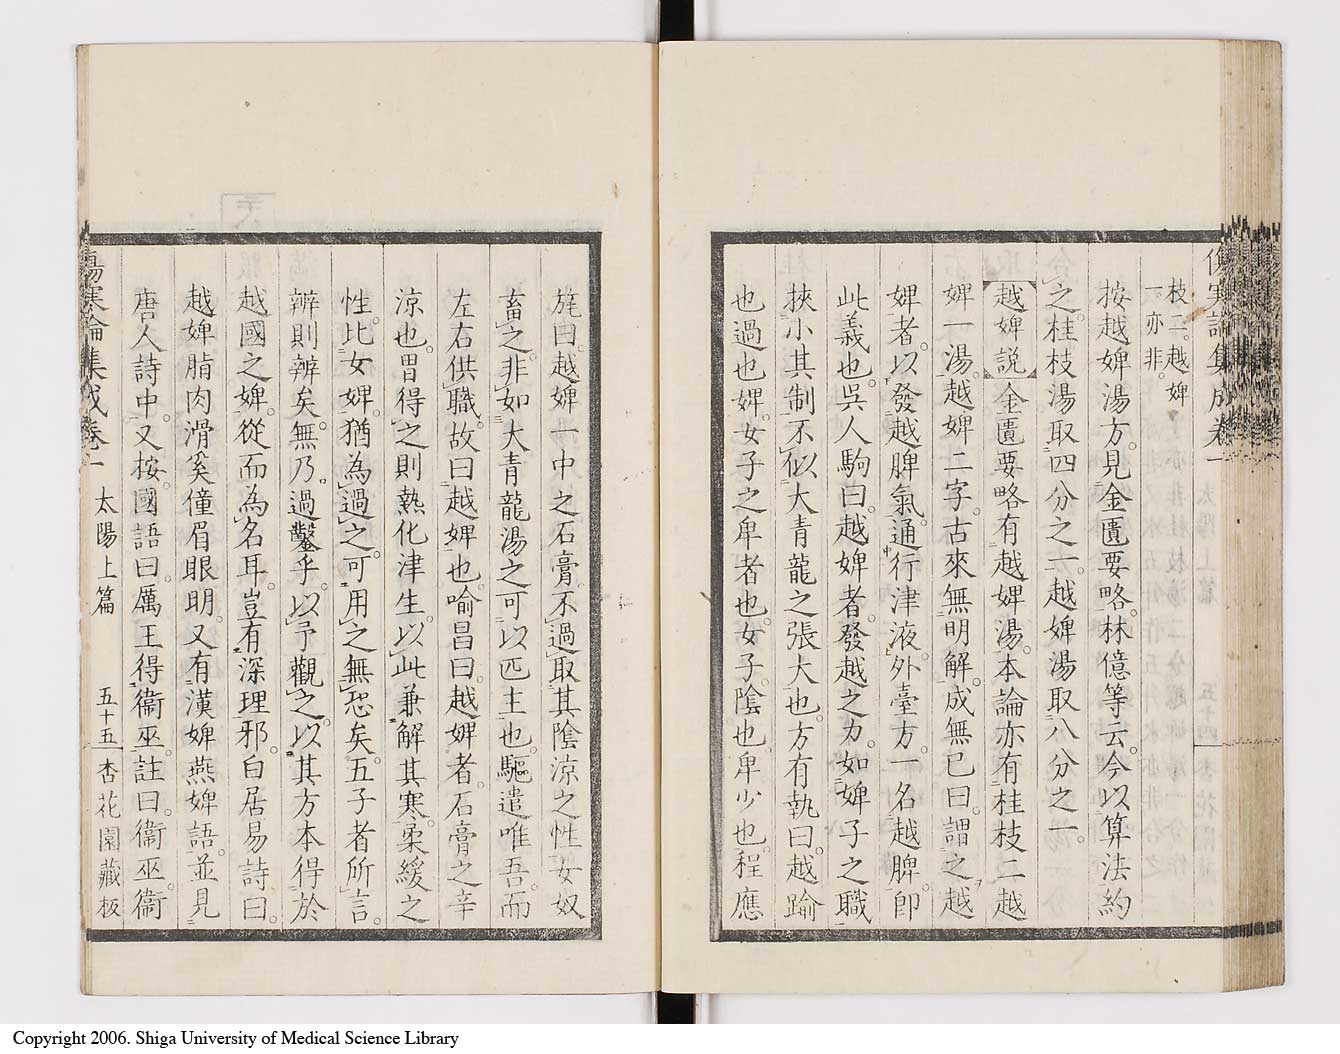 傷寒論集成卷一
枝二。越婢
一。亦非。
按越婢湯方。見金匱要略。林億等云。今以算法約
之。桂枝湯取四分之一。越婢湯取八分之一。
越婢說 金匱要略有越婢湯。本論亦有桂枝二越
婢一湯。越婢二字。古來無明解。成無已曰。謂之越
婢者。以發越脾氣。通行津液。外臺方。一名越脾。卽
此義也。吳人駒曰。越婢者。發越之力。如婢子之職
挾小其制。不似大青龍之張大也。方有執曰。越踰
也過也。婢。女子之卑者也。女子。陰也。卑少也。程應
旄曰。越婢一中之石膏。不過取其陰涼之性。女奴
畜之。非如大青龍湯之可以匹主也。驅遣唯吾。而
左右供職。故曰越婢也。喻昌曰。越婢者。石膏之辛
涼也。胃得之則熱化津生。以此兼解其寒。柔緩之
性。比女婢。猶為過之。可用之無恐矣。五子者所言。
辨則辨矣。無乃過鑿乎。以予觀之。以其方本得於
越國之婢。從而為名耳。豈有深理邪。白居易詩曰。
越婢脂肉滑。奚僮眉眼明。又有漢婢燕婢語。並見
唐人詩中。又按。國語曰。厲王得衞巫。註曰。衞巫。衞
傷寒論集成卷一 太陽上篇 五十五 杏花園藏板